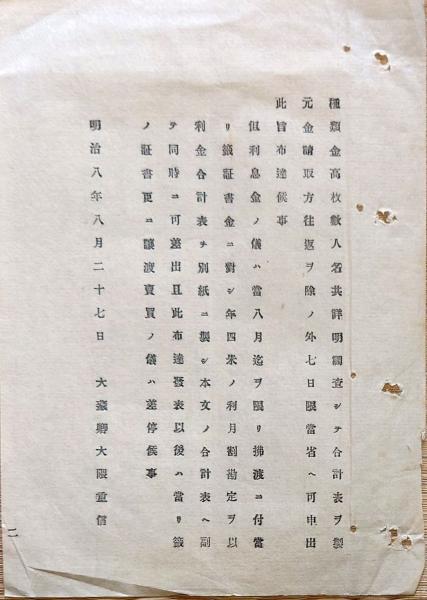 種類金高枚數人名共詳明調査シテ合計表ヲ製
元金請取方往返ヲ除ノ外七日限當省ヘ可申出
此旨布達候事
但利息金ノ儀ハ當八月迄ヲ限リ拂渡ニ付當
リ籤証書金ニ對シ年四朱ノ利月割勘定ヲ以
利金合計表ヲ別紙ニ製シ本文ノ合計表ヘ副
テ同時ニ可差出且此布達發表以後ハ當リ籤
ノ証書更ニ讓渡賣買ノ儀ハ差停候事
明治八年八月二十七日 大藏卿大隈重信
二